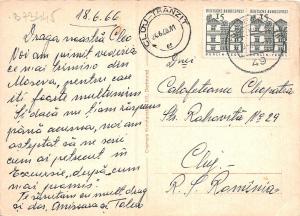 18.6.66
Draga noastră Cleo
Noi am primit vederea
ce mai trimiso din
Moscva, pentru care
iti foarte multumim
Si dacă ne tiam răspuns
până acuma, noi am
asteptat să ne scrii
cum ai petrecut in
Excursie, după cum
mai promis.
Te sărutăm cu mult drag
si dor,
CLUJ-TRANZIT
DEUTSCHE BUNDESPOST
15
DEUTSCHE BUNDESPOST
15
49
Dnei
Calofeteanu Cleopatra
Str. Rahovita No 29
Cluj
R. S. România